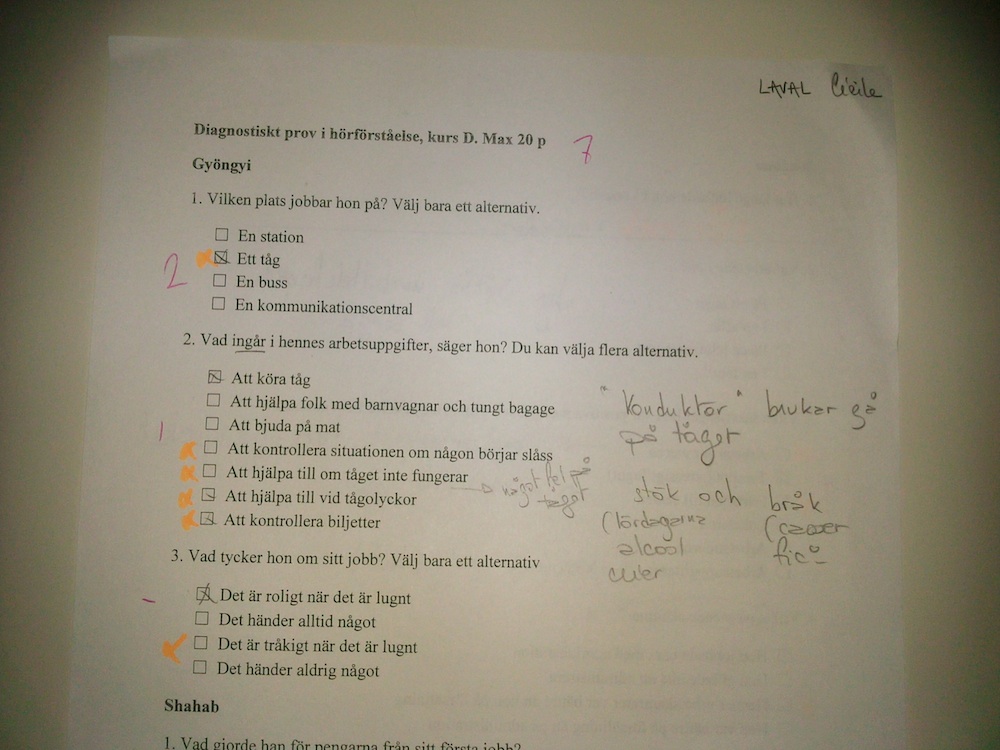 LAVAL Cécile
Diagnostiskt prov i hörförståelse, kurs D. Max 20 p
7
Gyöngyi
1. Vilken plats jobbar hon på? Välj bara ett alternativ.
En station
Ett tåg
2
En buss
En kommunikationscentral
2. Vad ingår i hennes arbetsuppgifter, säger hon? Du kan välja flera alternativ.
Att köra tåg
Att hjälpa folk med barnvagnar och tungt bagage
"Konduktor" brukar gå
på tåget
Att bjuda på mat
1
Att kontrollera situationen om någon börjar slåss
Att hjälpa till om tåget inte fungerar
något fel på
tåget
Att hjälpa till vid tågolyckor
Att kontrollera biljetter
stök och bråk
(lördagarna
alcool
3. Vad tycker hon om sitt jobb? Välj bara ett alternativ
-
Det är roligt när det är lugnt
Det händer alltid något
Det är tråkigt när det är lugnt
Det händer aldrig något
Shahab
1. Vad gjorde han för pengarna från sitt första jobb?